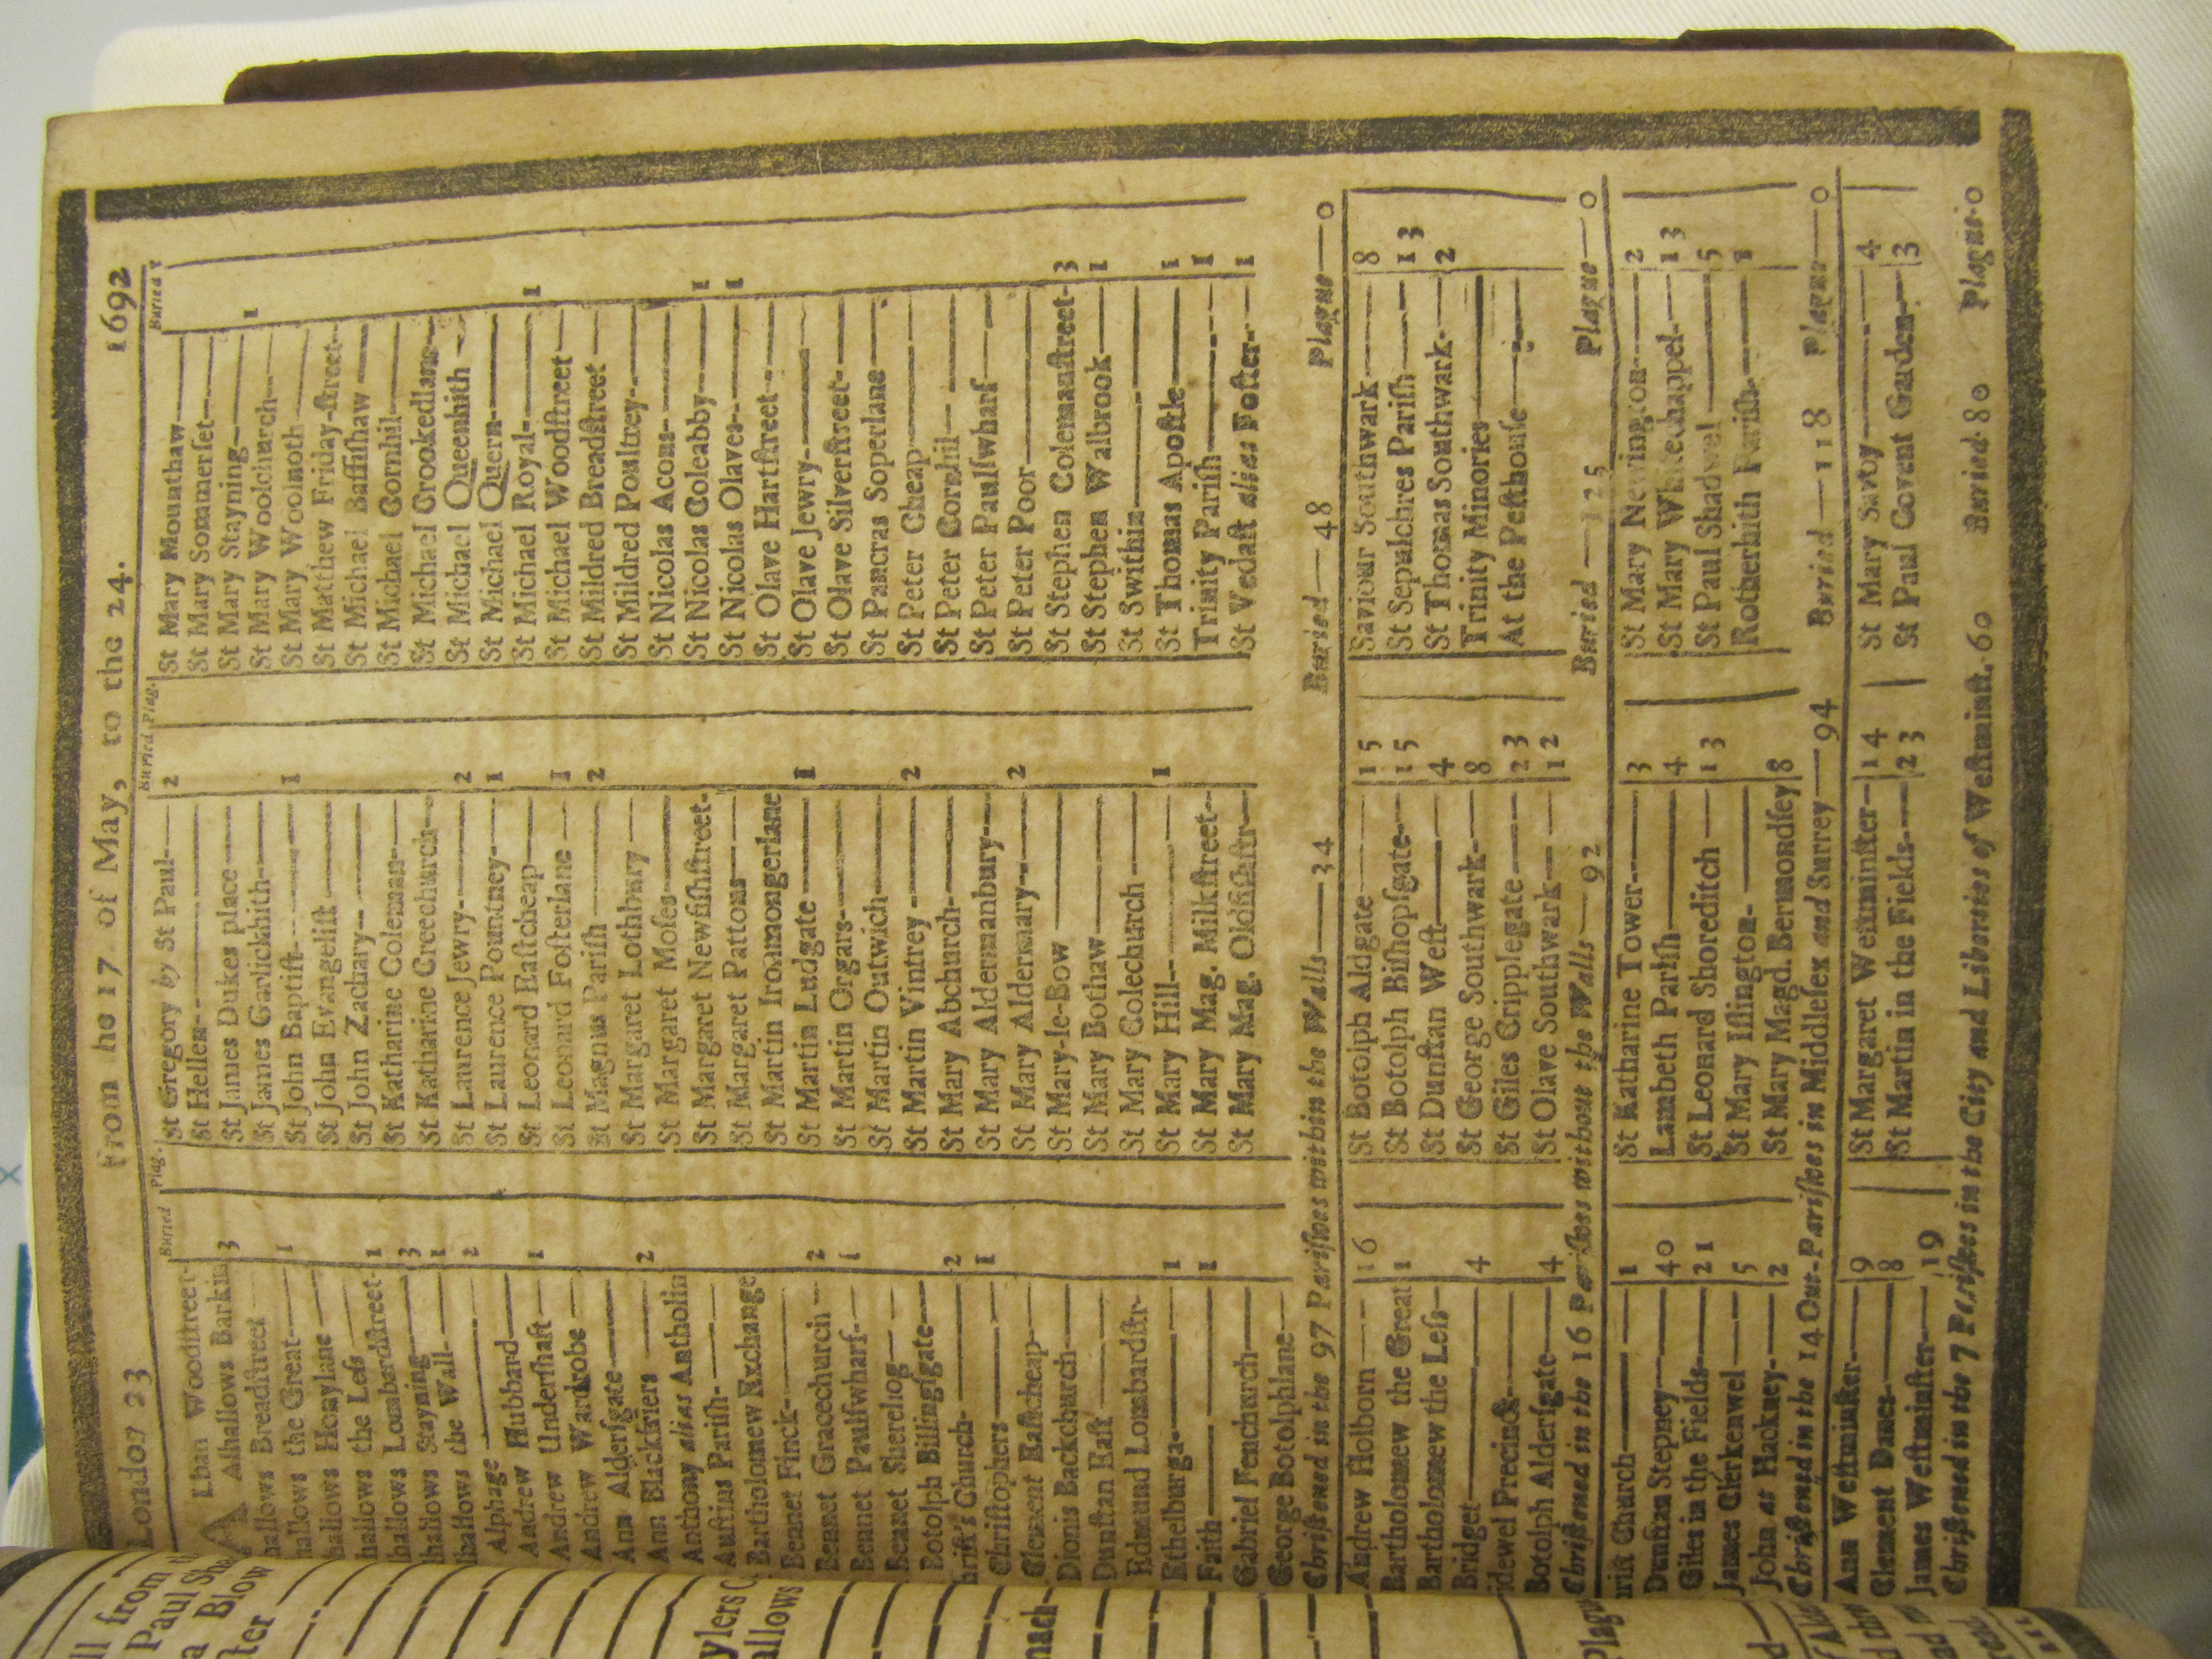 London 23 From he 17 of May, to the 24. 1692
Buried Plag.
lban Woodstreet
A Alhallows Barkin 3
hallows Breadstreet
hallows the Great 1
hallows Honylane
hallows the Less 1
hallows Lombardstreet 3
hallows Stayning 1
lhallows the Wall 2
Alphage
Andrew Hubbard 1
Andrew Undershaft
Andrew Wardrobe
Ann Aldersgate 2
Ann Blackfriers
Anthony alias Antholin
Austins Parish
Bartholomew Exchange
Bennet Finck 2
Bennet Gracechurch 1
Bennet Paulswharf
Bennet Sherehog
Botolph Billingsgate 2
hrist's Church 1
Christophers
Clement Eastcheap
Dionis Backchurch
Dunstan East
Edmund Lombardstr
Ethelburga 1
Faith 1
Gabriel Fenchurch
George Botolphlane
Buried Plag.
St Gregory by St Paul 2
St Hellen
St James Dukes place
St James Garlickhith 1
St John Baptist
St John Evangelist
St John Zachary
St Katharine Coleman
St Katharine Creechurch
St Laurence Jewry 2
St Laurence Pountney 1
St Leonard Eastcheap
St Leonard Fosterlane 1
St Magnus Parish 2
St Margaret Lothbury
St Margaret Moses
St Margaret Newfishstreet
St Margaret Pattons
St Martin Ironmongerlane
St Martin Ludgate 1
St Martin Orgars
St Martin Outwich
St Martin Vintrey 2
St Mary Abchurch
St Mary Aldermanbury
St Mary Aldermary 2
St Mary-le-Bow
St Mary Bothaw
St Mary Colechurch
St Mary Hill 1
St Mary Mag. Milkstreet
St Mary Mag. Oldfishstr
Buried
St Mary Mounthaw
St Mary Sommerset
St Mary Stayning 1
St Mary Woolchurch
St Mary Woolnoth
St Matthew Friday-street
St Michael Bassishaw
St Michael Cornhil
St Michael Crookedlane
St Michael Queenhith
St Michael Quern
St Michael Royal 1
St Michael Woodstreet
St Mildred Breadstreet
St Mildred Poultrey
St Nicolas Acons
St Nicolas Coleabby 1
St Nicolas Olaves 1
St Olave Hartstreet
St Olave Jewry
St Olave Silverstreet
St Pancras Soperlane
St Peter Cheap
St Peter Cornhil
St Peter Paulswharf
St Peter Poor
St Stephen Colemanstreet 3
St Stephen Walbrook 1
St Swithin
St Thomas Apostle 1
Trinity Parish 1
St Vedast alias Foster 1
Christened in the 97 Parishes within the Walls—34 Buried—48 Plague—0
Andrew Holborn 16
Bartholomew the Great 1
Bartholomew the Less
Bridget 4
idewel Precinct
Botolph Aldersgate 4
St Botolph Aldgate 15
St Botolph Bishopsgate 15
St Dunstan West 4
St George Southwark 8
St Giles Cripplegate 23
St Olave Southwark 12
Saviour Southwark 8
St Sepulchres Parish 13
St Thomas Southwark 2
Trinity Minories
At the Pesthouse
Christened in the 16 Parishes without the Walls—92 Buried—125 Plague—0
rist Church 1
Dunstan Stepney 40
Giles in the Fields 21
James Clerkenwel 5
John at Hackney 2
St Katharine Tower 3
Lambeth Parish 4
St Leonard Shoreditch 13
St Mary Islington
St Mary Magd. Bermondsey 8
St Mary Newington 2
St Mary Whitechappel 13
St Paul Shadwel 5
Rotherhith Parish 1
Christened in the 14 Out-Parishes in Middlesex and Surrey—94 Buried—118 Plague—0
Ann Westminster 9
Clement Danes 8
James Westminster 19
St Margaret Westminster 14
St Martin in the Fields 23
St Mary Savoy 4
St Paul Covent Garden 3
Christened in the 7 Parishes in the City and Liberties of Westminst. 60 Buried 80 Plague 0
ll from
Paul Sha
a Blow
ter
ylers
allows
Plagu